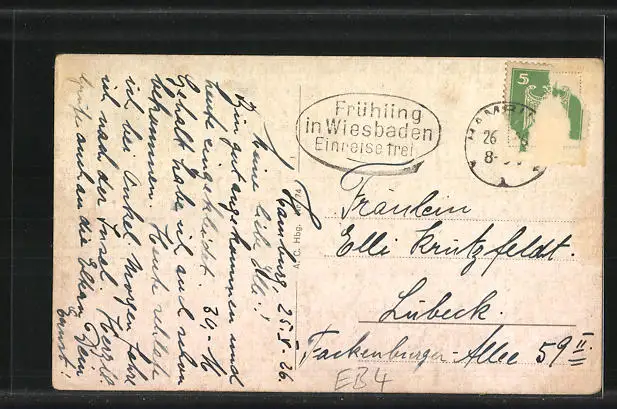 Hamburg, 25.V.26.
Meine liebe Elli!
Bin gut angekommen und
heute eingekleidet. 30,- M
Gehalt habe ich auch schon
bekommen. Heute
ich bei Onkel Morgen fahre
ich nach der Insel. Herzl.
Grüße auch an die Eltern Dein
Ernst!
A. C. Hbg.
Frühling
in Wiesbaden
Einreise frei
HAMBU
26
8-9
5
Fräulein
Elli Krützfeldt.
Lübeck.
Fackenburger-Allee 59 II.
EB4